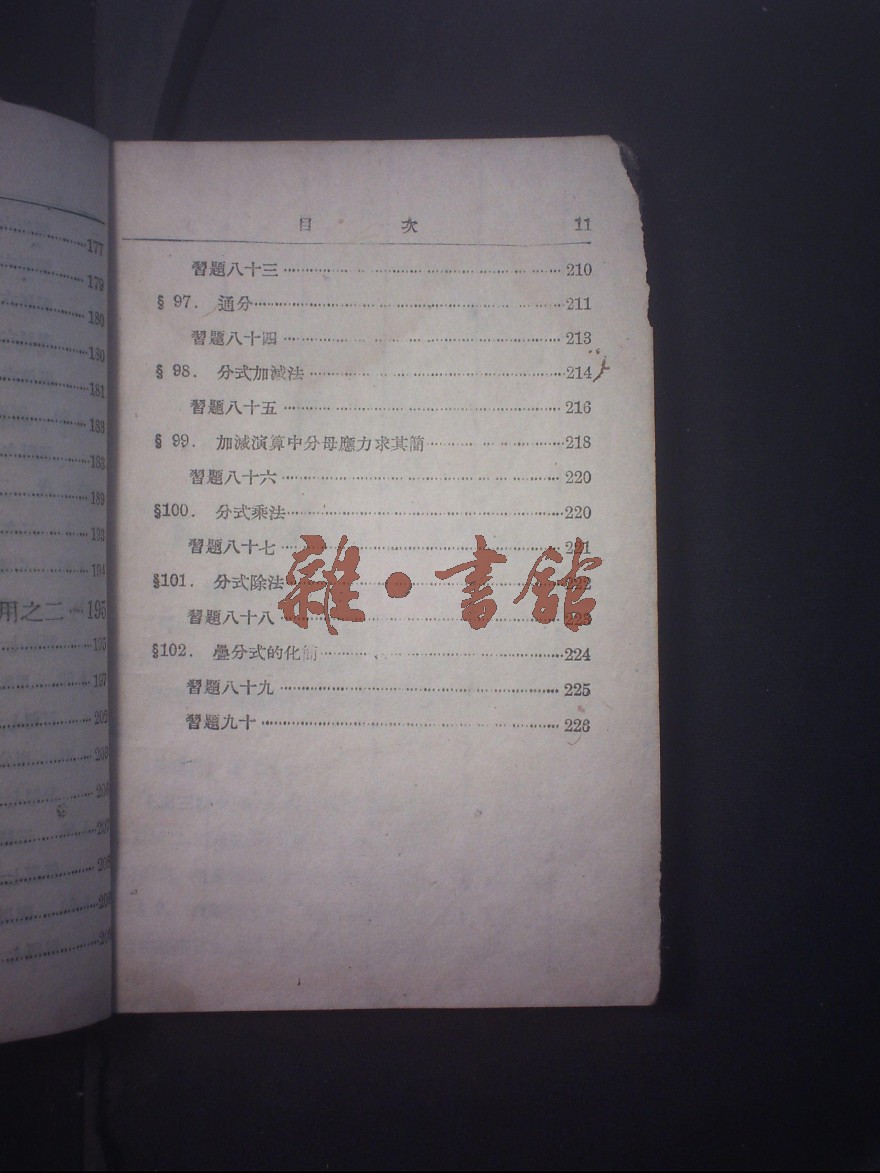 177
179
180
180
181
183
188
189
193
194
用之二…195
195
197
202
203
207
208
目 次 11
習題八十三……210
§ 97. 通分……211
習題八十四……213
§ 98. 分式加減法……214
習題八十五……216
§ 99. 加減演算中分母應力求其簡……218
習題八十六……220
§100. 分式乘法……220
習題八十七……221
§101. 分式除法……222
習題八十八……223
§102. 疊分式的化簡……224
習題八十九……225
習題九十……226
雜·書館